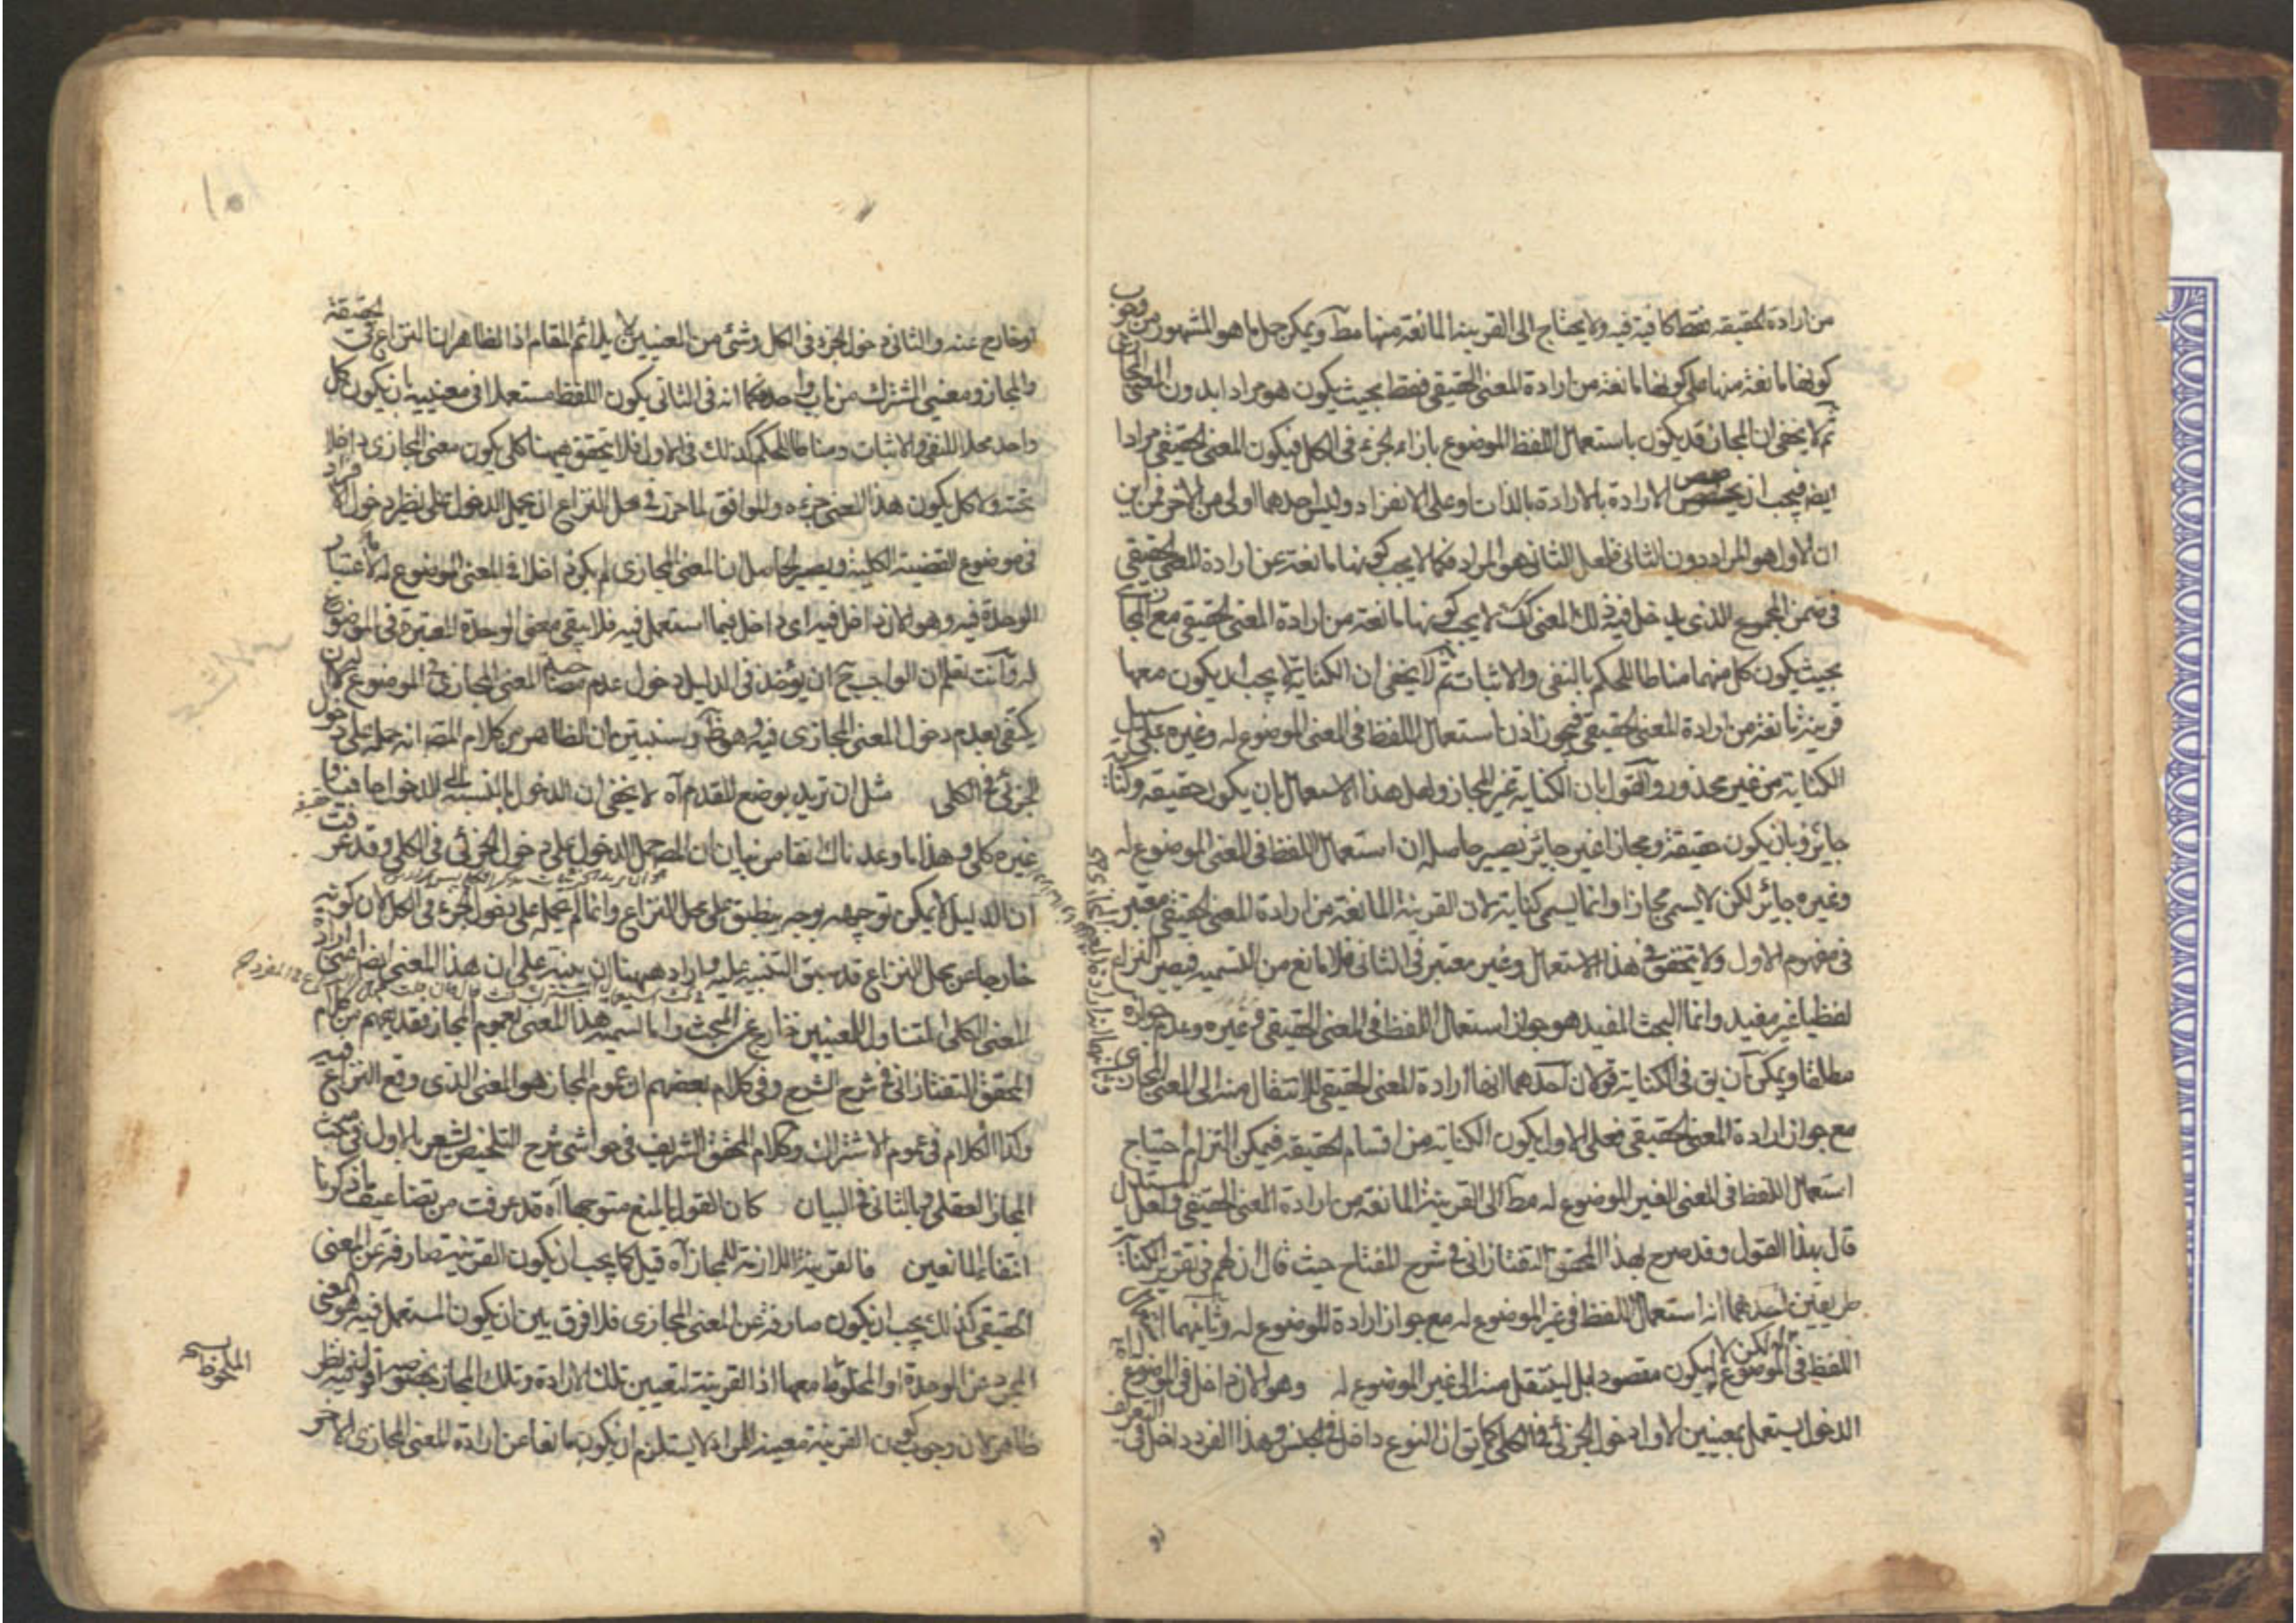 من ارادة الحقيقه فقط كافية فيه ولا يحتاج الى القرينه المانعة منها مطآ ويمكن حمل ما هو المشهور من وجوب
كونها مانعة منها على كونها مانعة من ارادة المعنى الحقيقى فقط بحيث يكون هو مرادا بدون المعنى المجازى
ثم لا يخفى ان المجاز قد يكون باستعمال اللفظ الموضوع بازاء الجزء فى الكل فيكون المعنى الحقيقى مرادا
ايضه فيجب ان يخصص الارادة بالارادة بالذات او على الانفراد وليس احدهما اولى من الاخر فمن اين
ان الاول هو المراد دون الثانى فلعل الثانى هو المراد فكما لا يجب كونها مانعة عن ارادة المعنى الحقيقى
فى ضمن المجموع الذى يدخل فيه ذلك المعنى كك لا يجب كونها مانعة من ارادة المعنى الحقيقى مع المجازى
بحيث يكون كل منهما مناطا للحكم بالنفى والاثبات ثم لا يخفى ان الكناية لا يجب ان يكون معها
قرينة مانعة من ارادة المعنى الحقيقى فيجوز اذن استعمال اللفظ فى المعنى الموضوع له وغيره على سبيل
الكناية من غير محذور والقول بان الكناية غير المجاز ولعل هذا الاستعمال بان يكون حقيقه وكناية
جائز وبان يكون حقيقة ومجازا غير جائز يصير حاصله ان استعمال اللفظ فى المعنى الموضوع له
وغيره جائز لكن لا يسمى مجازا وانما يسمى كناية لان القرينة المانعة من ارادة المعنى الحقيقى معتبر
فى مفهوم الاول ولا يتحقق فى هذا الاستعمال وغير معتبر فى الثانى فلا مانع من التسميه فيصير النزاع
لفظيا غير مفيد وانما البحث المفيد هو جواز استعمال اللفظ فى المعنى الحقيقى وغيره وعدم جوازه
مطلقا ويمكن ان يق فى الكناية قولان احدهما انها ارادة المعنى الحقيقى للانتقال منه الى المعنى المجازى
مع جواز ارادة المعنى الحقيقى فعلى الاول يكون الكناية من اقسام الحقيقه فيمكن التزام احتياج
استعمال اللفظ فى المعنى الغير الموضوع له مطآ الى القرينة المانعة من ارادة المعنى الحقيقى ولعل المستدل
قال بهذا القول وقد صرح بهذا المحقق التفتازانى فى شرح المفتاح حيث قال ان لهم فى تقرير الكناية
طريقين احدهما انه استعمال اللفظ فى غير الموضوع له مع جواز ارادة الموضوع له وثانيهما
اللفظ فى الموضوع له لكن لا ليكون مقصودا بل لينتقل منه الى غير الموضوع له وهو الان داخل فى الموضوع
الدخول يستعمل بمعنيين الاول دخول الجزئى فى الكلى كما ق ان النوع داخل فى الجنس وهذا الفرد داخل فى
او خارج عنه والثانى دخول الجزء فى الكل وشئ من المعنيين لا يلائم المقام اذ الظاهر ان النزاع فى الحقيقة
والمجاز ومعنيى المشترك من باب واحد فكما انه فى الثانى يكون اللفظ مستعملا فى معنييه بان يكون كل
واحد محلا للنفى والاثبات ومناطا للحكم كذلك فى الاول فلا يتحقق ههنا كلى يكون معنى المجازى داخلا
تحته ولا كل يكون هذا المعنى جزءه والموافق لما حرر فى محل النزاع ان يحمل الدخول على نظير دخول الافراد
فى موضوع القضية الكلية ويصير الحاصل ان المعنى المجازى لم يكن داخلا فى المعنى الموضوع له لاعتبار
الوحدة فيه وهو الان داخل فيه اى داخل فيما استعمل فيه فلا يبقى معنى الوحدة المعتبرة فى الموضوع
له وانت تعلم ان الواجب ح ان يؤخذ فى الدليل دخول عدم المعنى المجازى فى الموضوع له لا ان
يكتفى بعدم دخول المعنى المجازى فيه وهو ظ وسنبين ان الظاهر من كلام المصه انه حمله على دخول
الجزئى فى الكلى مثل ان تريد بوضع القدم آه لا يخفى ان الدخول بالنسبة الى الدخول حافيا
غيره كلى وهذا ما وعدناك انفا من بيان ان المصه حمل الدخول على دخول الجزئى فى الكلى وقد عرفت
ان الدليل لا يمكن توجيهه بوجه ينطبق على محل النزاع وانما لم يحمله على دخول الجزء فى الكل لان كونه
خارجا عن محل النزاع قد سبق التنبيه عليه واراد ههنا ان ينبه على ان هذا المعنى ايضا اعنى ارادة
المعنى الكلى المتناول للمعنيين خارج عن المبحث واما تسميه هذا المعنى بعموم المجاز فقد يفهم من كلام
المحقق التفتازانى فى شرح الشرح وفى كلام بعضهم ان عموم المجاز هو المعنى الذى وقع النزاع فيه
وكذا الكلام فى عموم الاشتراك وكلام المحقق الشريف فى حواشى شرح التلخيص يشعر بالاول فى مبحث
المجاز العقلى وبالثانى فى البيان كان القول بالمنع متوجها آه قد عرفت من تضاعيف ما ذكرنا
انتفاء المانعين فالقرينة اللازمة للمجاز آه قيل كما يجب ان يكون القرينة صارفة عن المعنى
الحقيقى كذلك يجب ان يكون صارفة عن المعنى المجازى فلا فرق بين ان يكون المستعمل فيه هو المعنى
المجرد عن الوحدة او الملحوظ معها اذ القرينة لتعيين تلك الارادة وتلك المجاز بخصوصه اقول فيه نظر
ظاهر لان وجوب كون القرينة معينة للمراد لا يستلزم ان يكون مانعا عن ارادة المعنى المجازى الاخر